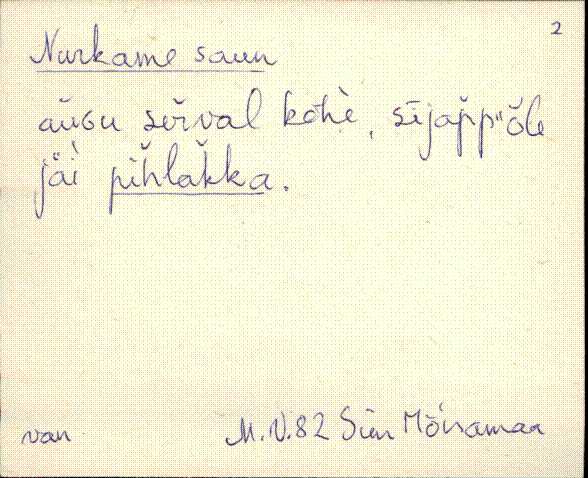 2
Nurkame saun
aŭsu seřval kohè, sījapp̌ōle
jäi pĭhlaǩka.
van M.V.82 Siin Mõisamaa